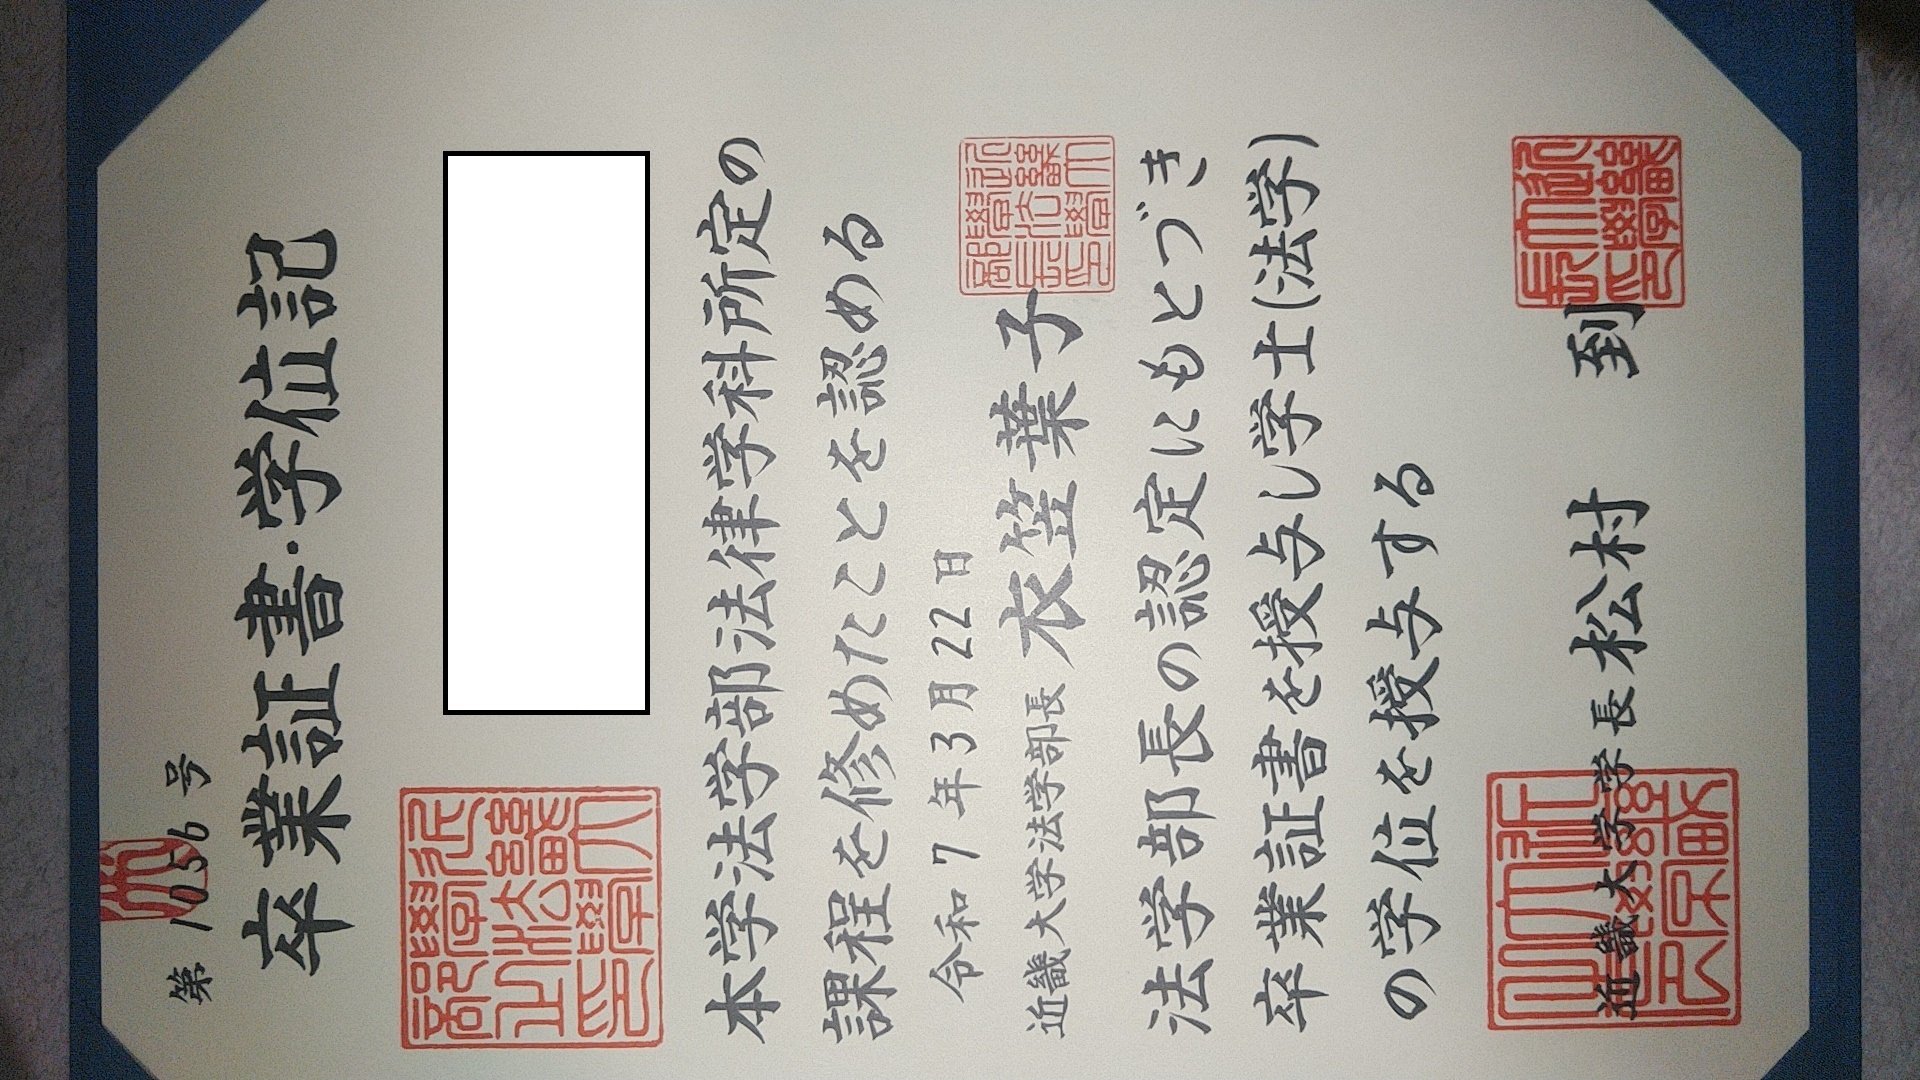 第1056号
卒業証書・学位記
本学法学部法律学科所定の
課程を修めたことを認める
令和7年3月22日
近畿大学法学部長 衣笠葉子
法学部長の認定にもとづき
卒業証書を授与し学士(法学)
の学位を授与する
近畿大学学長 松村到